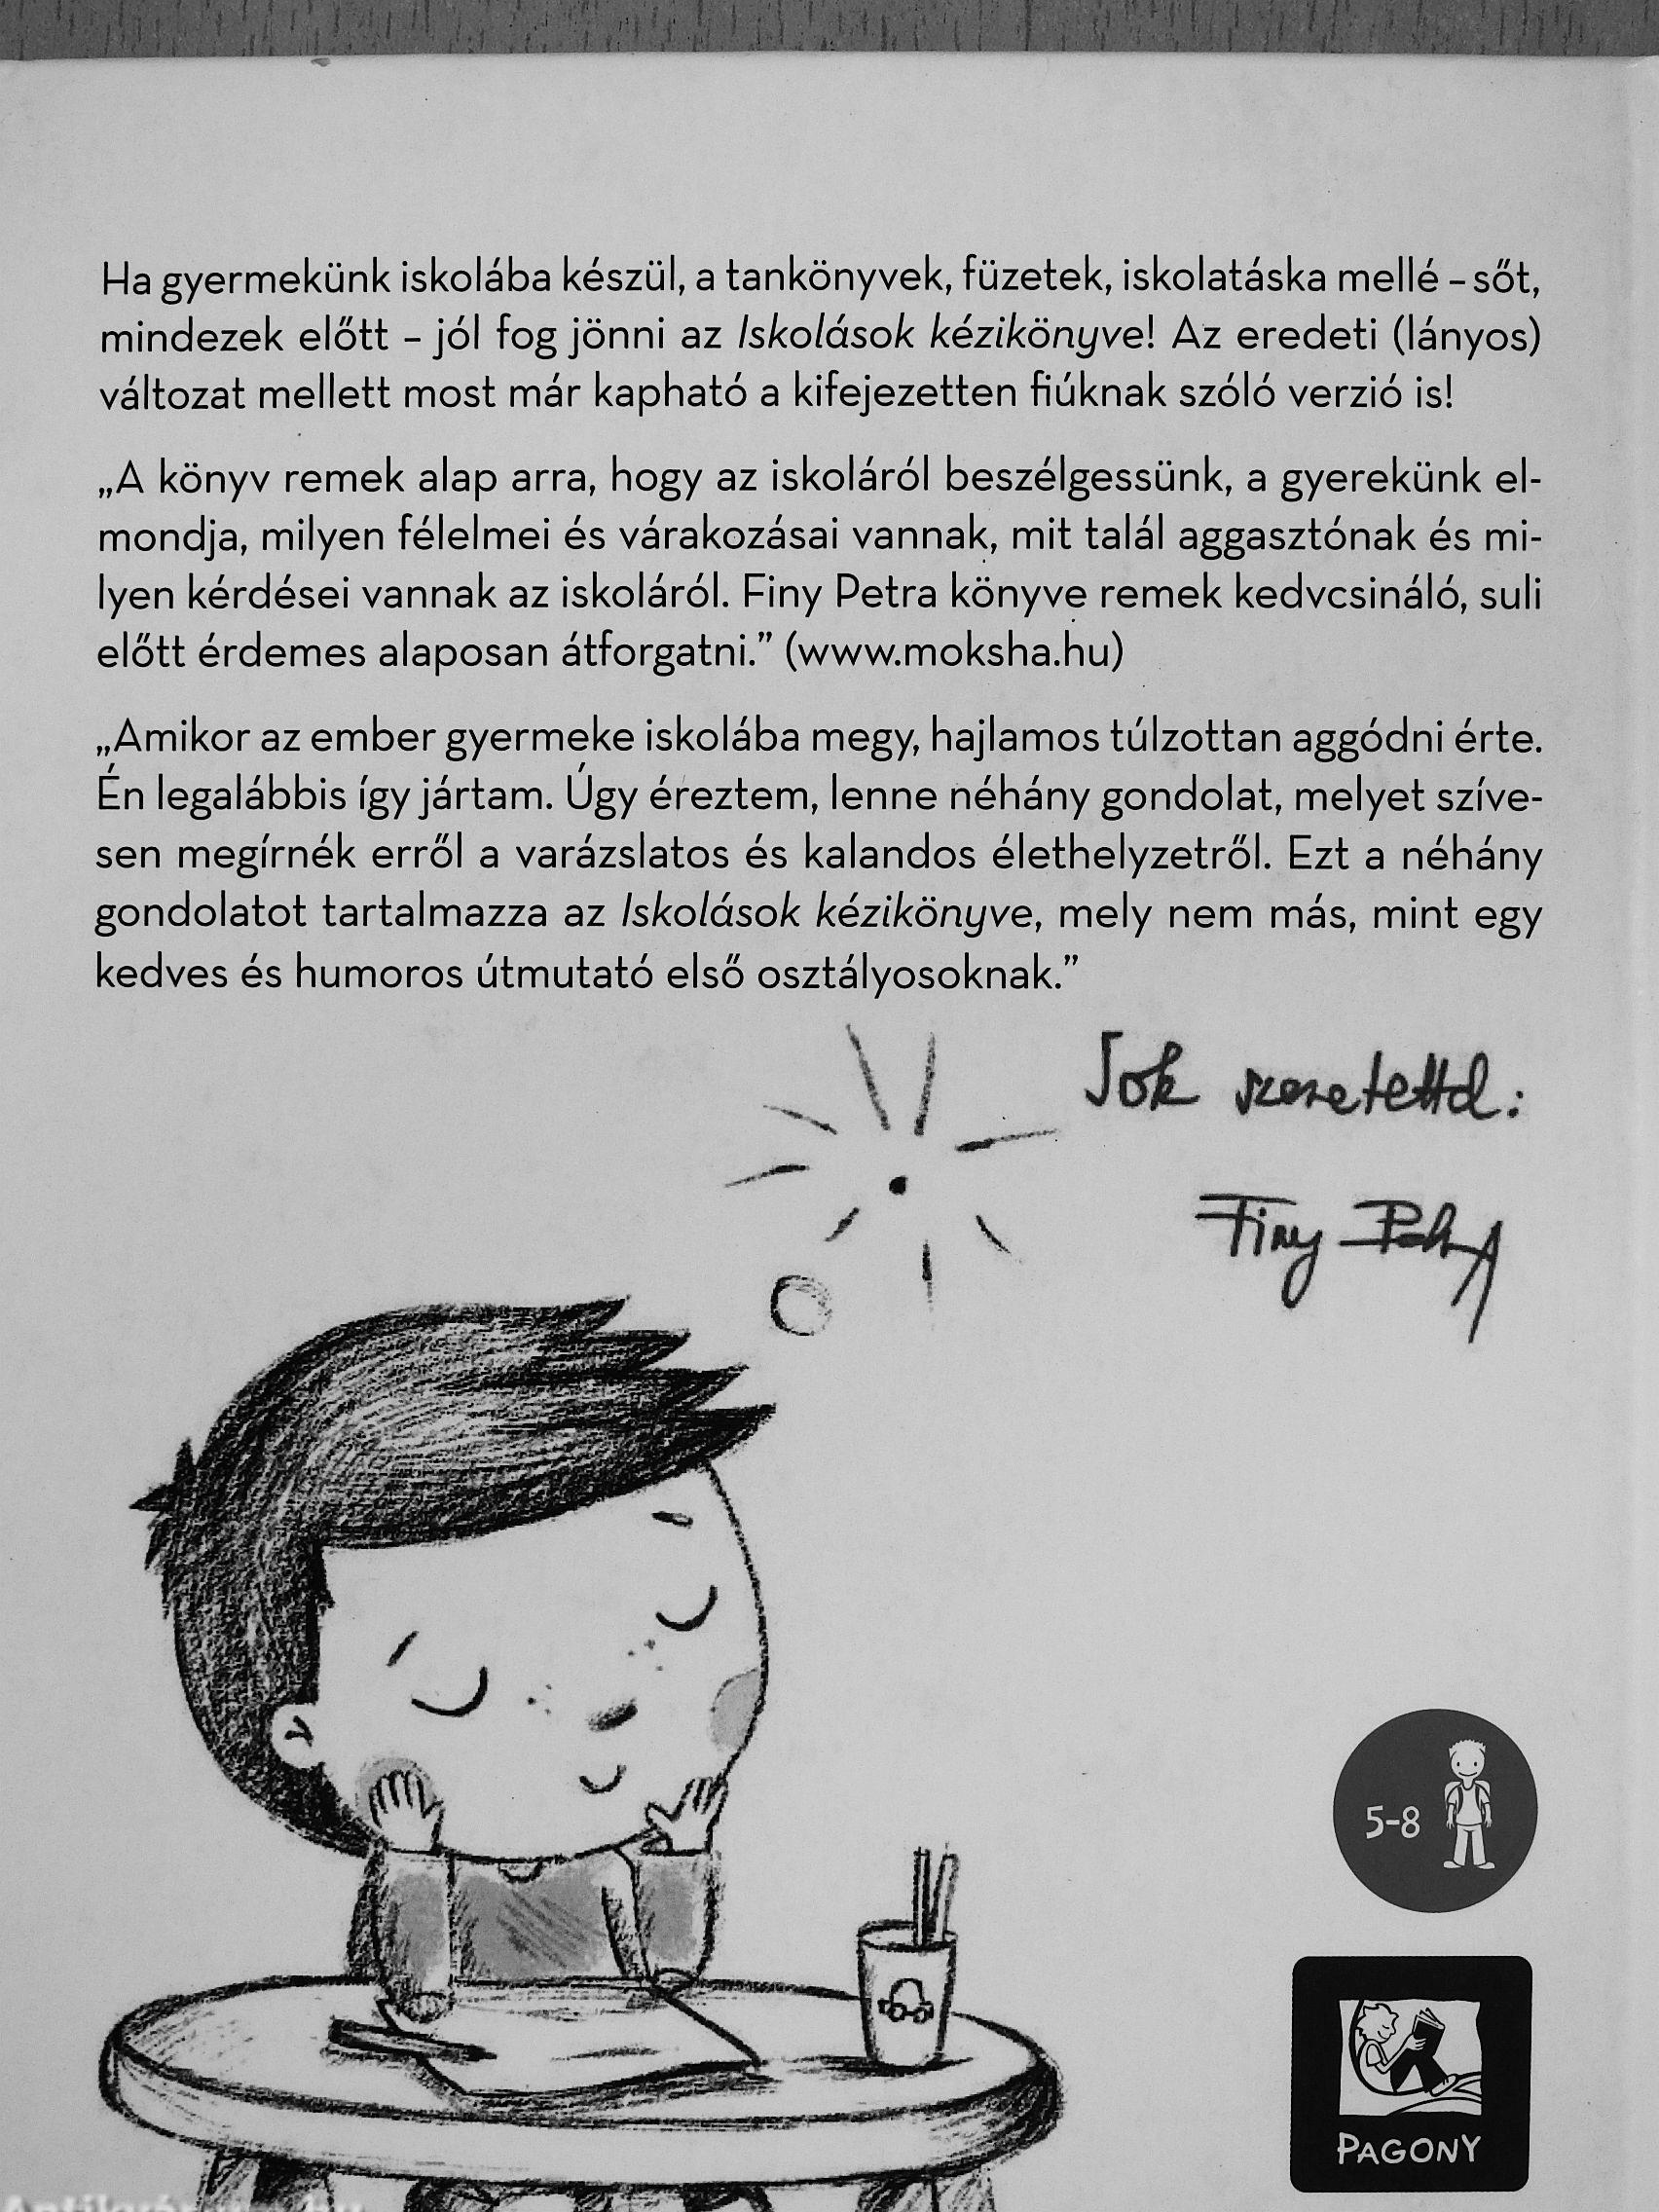 Ha gyermekünk iskolába készül, a tankönyvek, füzetek, iskolatáska mellé – sőt,
mindezek előtt – jól fog jönni az Iskolások kézikönyve! Az eredeti (lányos)
változat mellett most már kapható a kifejezetten fiúknak szóló verzió is!
„A könyv remek alap arra, hogy az iskoláról beszélgessünk, a gyerekünk el-
mondja, milyen félelmei és várakozásai vannak, mit talál aggasztónak és mi-
lyen kérdései vannak az iskoláról. Finy Petra könyve remek kedvcsináló, suli
előtt érdemes alaposan átforgatni.” (www.moksha.hu)
„Amikor az ember gyermeke iskolába megy, hajlamos túlzottan aggódni érte.
Én legalábbis így jártam. Úgy éreztem, lenne néhány gondolat, melyet szíve-
sen megírnék erről a varázslatos és kalandos élethelyzetről. Ezt a néhány
gondolatot tartalmazza az Iskolások kézikönyve, mely nem más, mint egy
kedves és humoros útmutató első osztályosoknak.”
Sok szeretettel:
Finy Petra
5-8
PAGONY